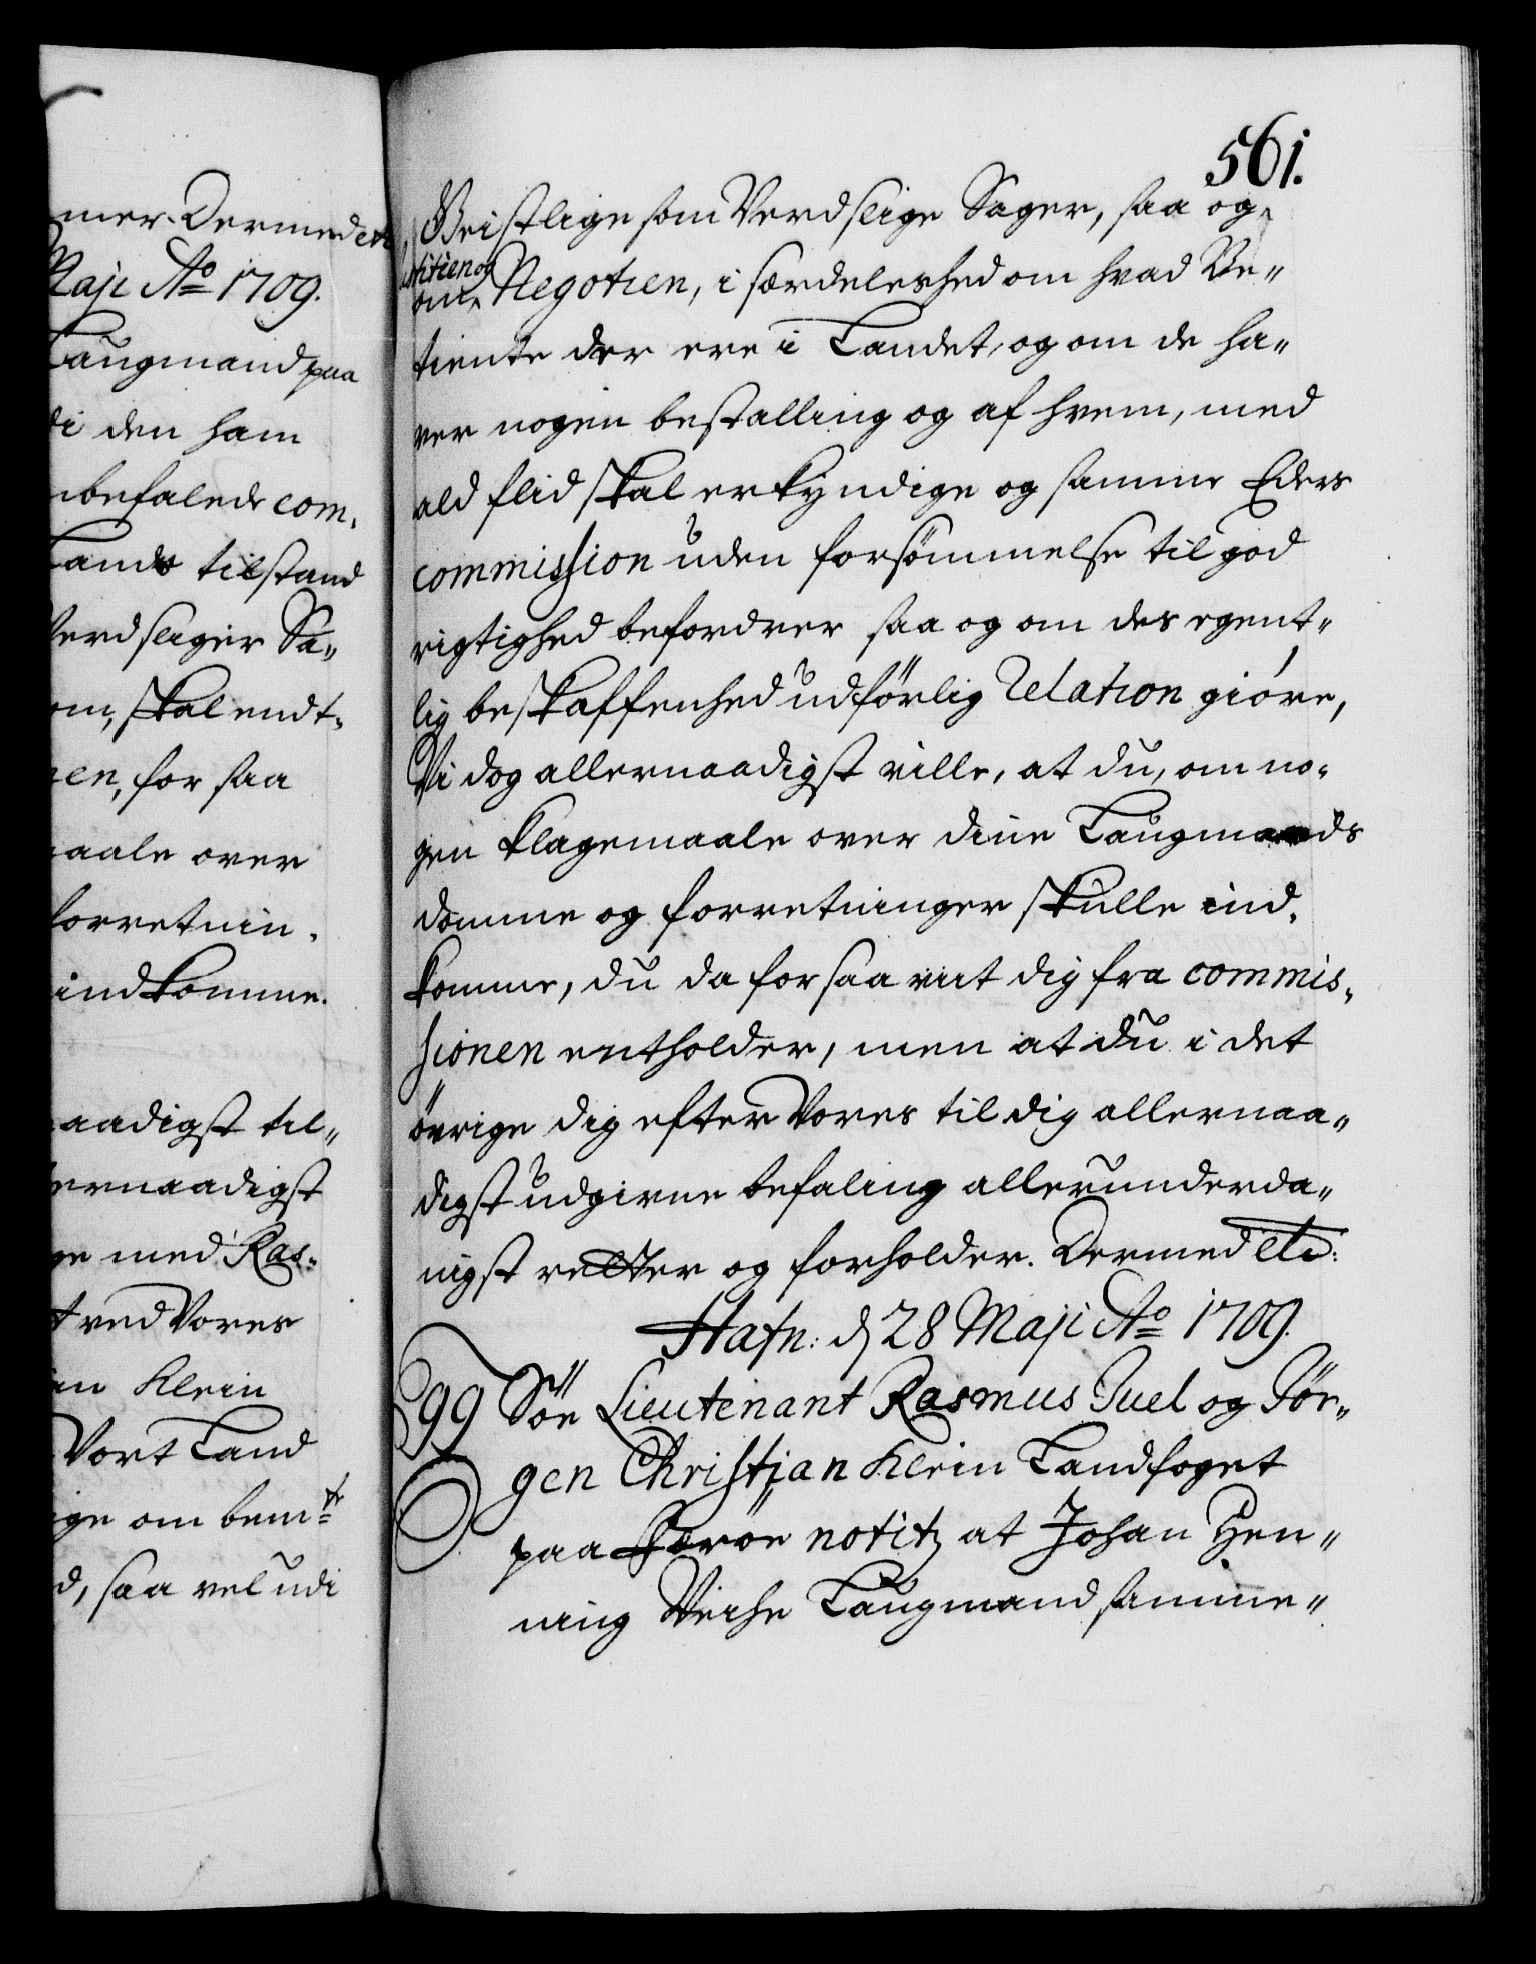 mer. Dermed etc
Maji Aº 1709.
Laugmand paa
di den ham
nbefalede com„
Lands tilstand
Verdslige Sa„
om, skal endt„
nen, for saa
maale over
forretnin„
indkomme.
aadigst til„
ernaadigst
ge med Ras„
t ved Vores
an Klein
Vort Land
ige om bemte
d, saa vel udi
561.
Geistlige som Verdslige Sager, saa og
titien og
om Negotien, i særdeleshed om hvad Be„
tiente der ere i Landet, og om de ha„
ver nogen bestalling og af hvem, med
ald flid skal erkyndige og samme Eders
commission uden forsömmelse til god
rigtighed befordrer saa og om des egent„
lig beskaffenhed udförlig Relation gióre,
Vi dog allernaadigst ville, at du, om no„
gen klagemaale over dine Laugmands
domme og forretninger skulle ind„
komme, du da forsaavit dig fra commis„
sionen entholder, men at du i det
övrige dig efter Vores til dig allernaa„
digst udgivne befaling allerunderda„
nigst retter og forholder. Dermed etc:
Hafn: d 28 Maji Aº 1709.
99 Söe Lieutenant Rasmus Juel og Jör„
gen Christian Klein Landfoget
paa Færöe notitz at Johan Hen„
ning Weihe Laugmand samme„